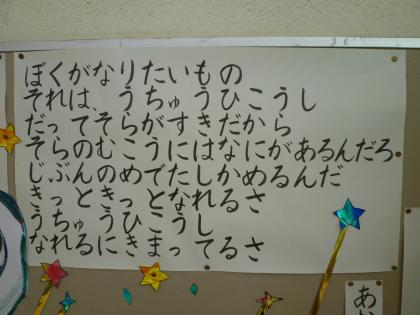 ぼくがなりたいもの
それは、うちゅうひこうし
だってそらがすきだから
そらのむこうにはなにがあるんだろ
じぶんのめでたしかめるんだ
きっときっとなれるさ
うちゅうひこうし
なれるにきまってるさ
あ